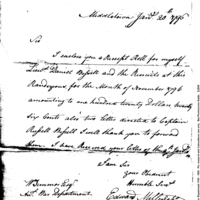 Middletown Jany. 20th 1796
Sir
I enclose you a Receipt Roll for myself
Lieut. Daniel Bissell and the Recruits at this
Rendezvous for the Month of November 1796
amounting to one hundred twenty Dollars twenty
Six Cents also two letters directed to Captain
Russell Bissell I will thank you to forward
them. I have Received your letter of the
I am Sir
your Obedient
Humble Servt.
Edward
W Simmons Esqr.
Acct. War Department